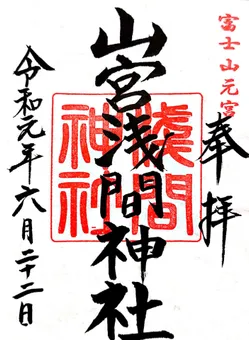 富士山元宮
奉拝
山宮浅間神社
淺間神社
令和元年六月二十二日